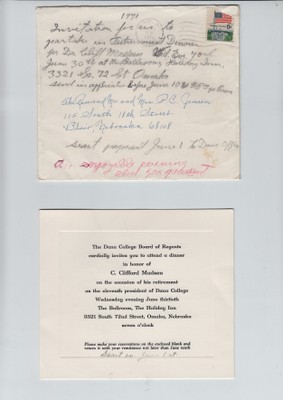 1971
Invitation for us to
partake in Retirement Dinner
for Dr. Cliff Madsen
June 30th at the Ballroom, Holiday Inn,
3321 So. 72 St Omaha
sent in application before June 10th
The General Mr and Mrs P.C. Jensen
115 South 18th Street
Blair, Nebraska 68008
sent payment June 1 to Dana College
an enjoyable evening
The Dana College Board of Regents
cordially invites you to attend a dinner
in honor of
C. Clifford Madsen
on the occasion of his retirement
as the eleventh president of Dana College
Wednesday evening June thirtieth
The Ballroom, The Holiday Inn
3321 South 72nd Street, Omaha, Nebraska
seven o'clock
Please make your reservations on the enclosed blank and
return it with your remittance not later than June tenth
Sent in June 1st